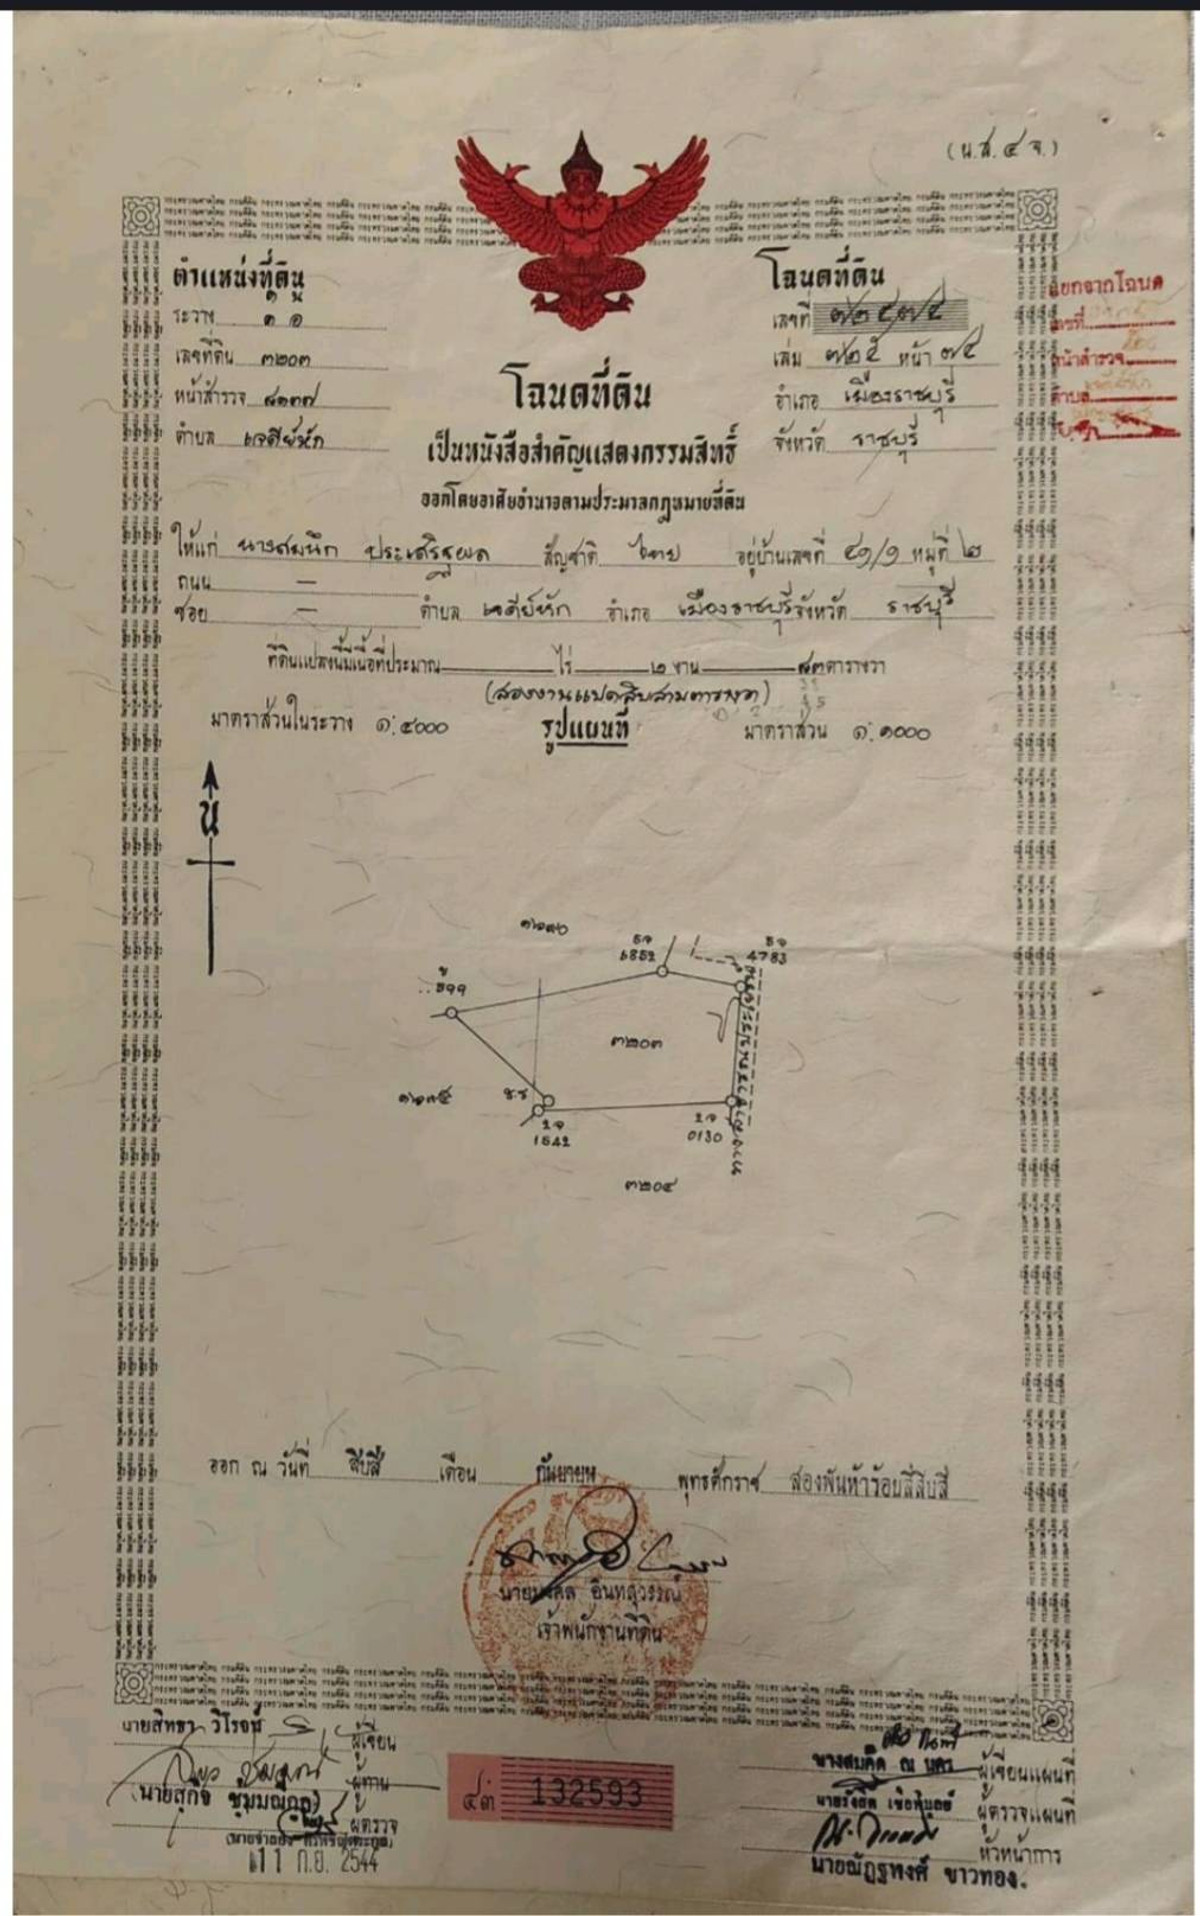 (น.ส. ๔ จ.)
ตำแหน่งที่ดิน
ระวาง
เลขที่ดิน ๓๒๐๓
หน้าสำรวจ ๘๓๓๗
ตำบล เจดีย์หัก
โฉนดที่ดิน
เลขที่ ๗๒๔๗๔
เล่ม ๗๒๕ หน้า ๗๔
อำเภอ เมืองราชบุรี
จังหวัด ราชบุรี
แยกจากโฉนด
เลขที่
หน้าสำรวจ
ตำบล
โฉนดที่ดิน
เป็นหนังสือสำคัญแสดงกรรมสิทธิ์
ออกโดยอาศัยอำนาจตามประมวลกฎหมายที่ดิน
ให้แก่ นางสมนึก ประเสริฐผล สัญชาติ ไทย อยู่บ้านเลขที่ ๔๑/๑ หมู่ที่ ๒
ถนน —
ซอย — ตำบล เจดีย์หัก อำเภอ เมืองราชบุรี จังหวัด ราชบุรี
ที่ดินแปลงนี้มีเนื้อที่ประมาณ ไร่ ๒ งาน ๘๓ ตารางวา
(สองงานแปดสิบสามตารางวา)
มาตราส่วนในระวาง ๑:๔๐๐๐ รูปแผนที่ มาตราส่วน ๑:๑๐๐๐
น
4783
๓๒๐๓
1542
0130
๓๒๐๔
ทางสาธารณประโยชน์
ออก ณ วันที่ สิบสี่ เดือน กันยายน พุทธศักราช สองพันห้าร้อยสี่สิบสี่
นายมงคล อินทสุวรรณ์
เจ้าพนักงานที่ดิน
นายสิทธา วิโรจน์ ผู้เขียน
ผู้ทาน
(นายสุกิจ ชุ่มมณีกูล)
ผู้ตรวจ
11 ก.ย. 2544
๔๓ 132593
นางสมคิด ณ นคร ผู้เขียนแผนที่
ผู้ตรวจแผนที่
หัวหน้าการ
นายณัฏฐพงศ์ ขาวทอง.